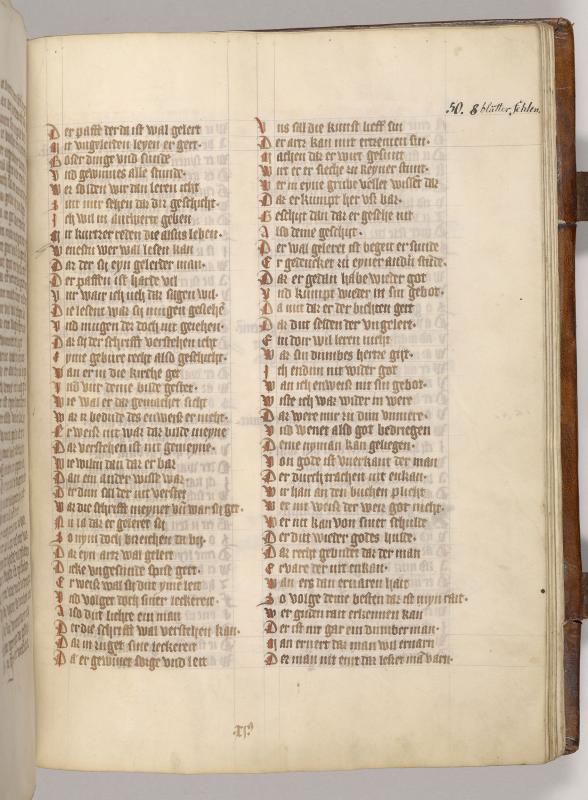 50. 8 blätter fehlen.
Der pafft der da ist wal gelert
Mit vngelerden leyen er gert
Boser dinge vnd sunde
Vnd gewinnes alle stunde
Wer solden wir dan leren icht
Sint mir sehen daz diz geschicht
Ich wil in antwert geben
Mit kurtzer reden die alsus leben
Wenestu wer wal lesen kan
Daz der sij eyn gelerder man
Der paffen ist harde vil
Vur war ich uch daz sagen wil
Die lesent waz sij mugen gesiehe
Vnd mugen des doch nit geiehen
Daz sij der schrifft verstehen icht
Eyme gebure recht also geschicht
Wan er in die kirche get
Vnd vur deme bilde gestet
Wie wal er daz gemacher sicht
Waz iz bedude des enweisz er nicht
Er weisz nit waz daz bilde meyne
Daz verstehen ist nit gemeyne
Wie wilm dan daz er baz
Dan ein ander wisse waz
Er dun sal der nit verstet
Waz die schrifft meynet
Nu la daz er geleret sij
So nym doch bizeichen da bij
Daz eyn artz wal gelert
Dicke vngesunde spise gert
Er weisz wal sij dut yme leit
Vnd volget doch siner leckereit
Also dut lichte ein man
Der die schrifft wal verstehen kan
Daz in zuget sine leckereit
Daz er gewinet sorge vnd leit
Vns sall die kunst lieff sin
Der artz kan mit ertzenien sin
Machen daz er wirt gesunt
Wirt er der sieche zu keyner stunt
Wer in eyne grube vellet wisset daz
Daz er kumpt her vsz baz
Geschyt dan daz er gesehe nit
Also deme geschyt
Der wal geleret ist begeit er sunde
Er gedencket zu eyner andn stude
Daz er getan habe wieder got
Vnd kumpt wieder in sin gebot
Da mit daz er der bichten gert
Daz dut selden der vngelert
Ein dore wil leren nicht
Waz sin dumbes hertze giht
Ich endun nit wider got
Wan ich enweisz nit sin gebot
Wiste ich waz wider in were
Daz were mir zu dun vnmere
Vnd wenet also got bedriegen
Deme nyman kan geliegen
Von gode ist vnerkant der man
Er durch trachten nit enkan
Wir han an den buchen plicht
Wer nit weisz der weiz got nicht
Wer nit kan von siner schulde
Er dut wieder godes hulde
Daz recht gebudet daz der man
Ervare der nit enkan
Wan ers dan ervaren hait
So volge deme besten daz ist myn rait
Wer guden rait erkennen kan
Der ist nit gar ein dumber man
Man ernert daz man wil ervarn
Der man nit enit daz lester